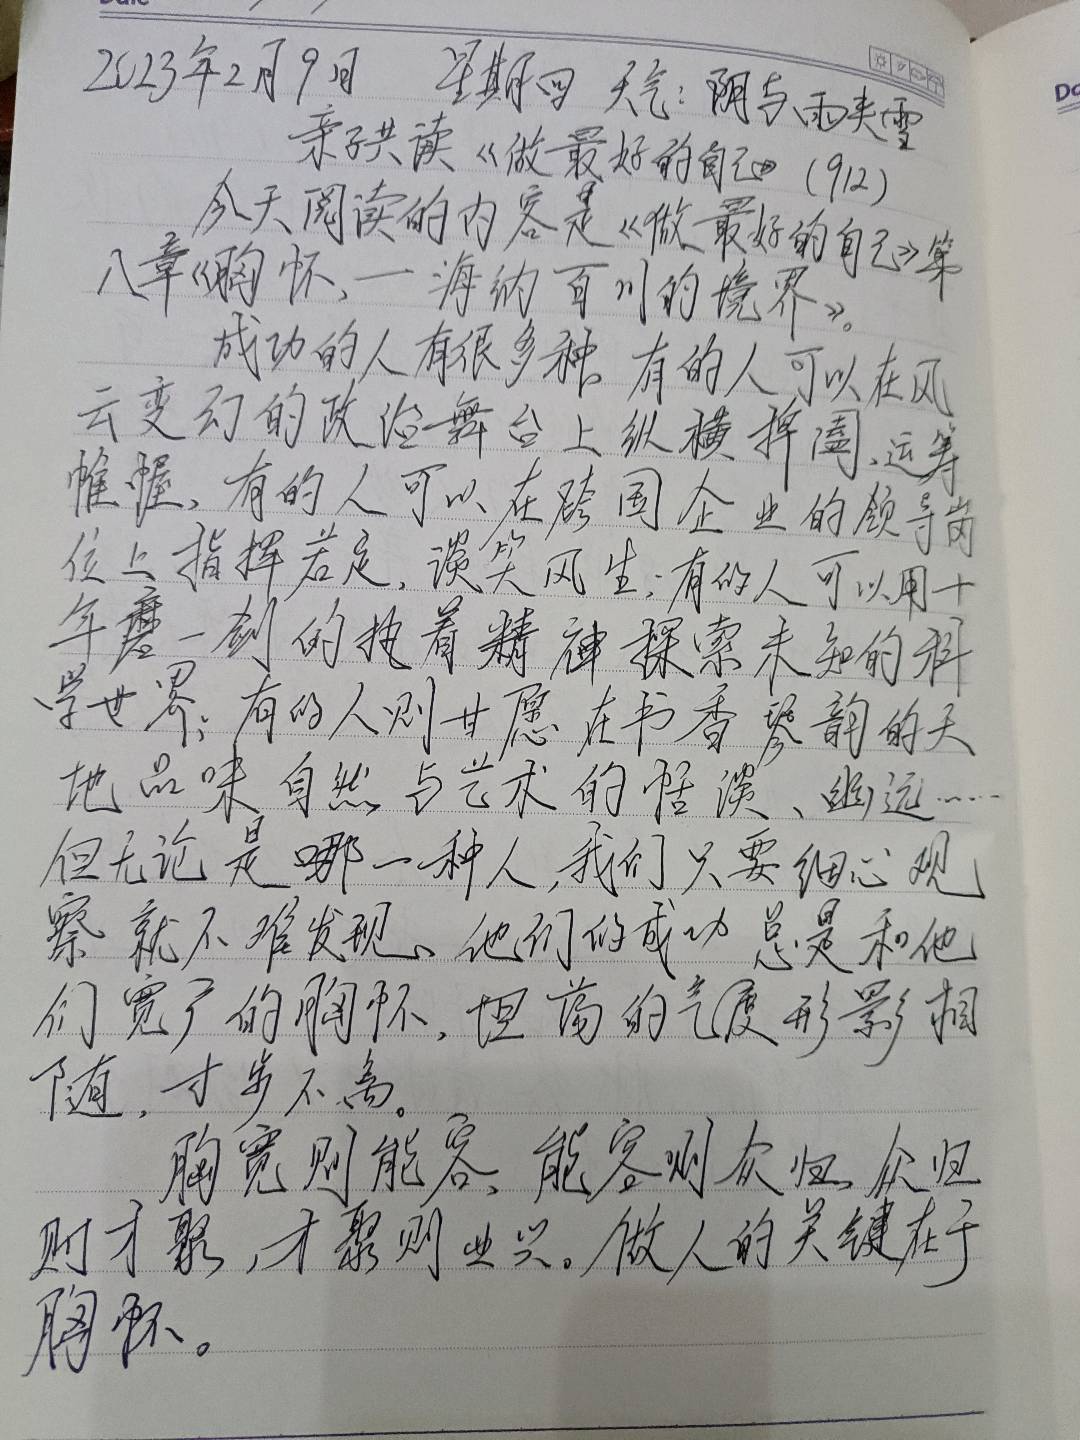 Date
2023年2月9日 星期四 天气:阴与雨夹雪
亲子共读《做最好的自己》(912)
今天阅读的内容是《做最好的自己》第
八章《胸怀、一海纳百川的境界》。
成功的人有很多种、有的人可以在风
云变幻的政治舞台上纵横捭阖、运筹
帷幄、有的人可以在跨国企业的领导岗
位上指挥若定,谈笑风生;有的人可以用十
年磨一剑的执着精神探索未知的科
学世界;有的人则甘愿在书香琴韵的天
地品味自然与艺术的恬淡、幽远……
但无论是哪一种人,我们只要细心观
察就不难发现、他们的成功总是和他
们宽广的胸怀,坦荡的气度形影相
随,寸步不离。
胸宽则能容、能容则众归、众归
则才聚,才聚则业兴。做人的关键在于
胸怀。
Da